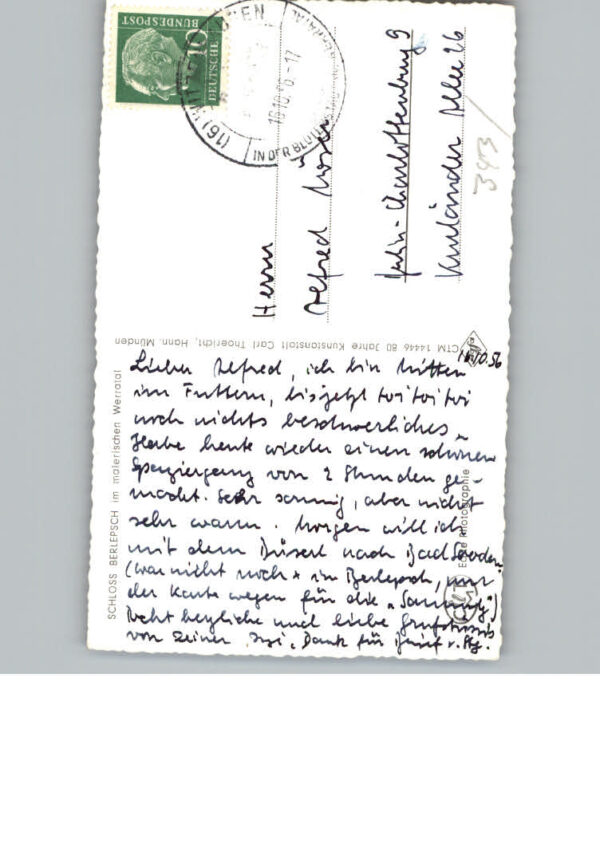 10
DEUTSCHE
BUNDESPOST
(16)
IN DER
16.10.56-17
Herrn
Alfred
Berlin-Charlottenburg 9
Kurländer Allee 26
343/
CTM 14446 80 Jahre Kunstanstalt Carl Thoericht, Hann. Münden
SCHLOSS BERLEPSCH im malerischen Werratal
Echte Photographie
16.10.56
Lieber Alfred, ich bin mitten
im Futtern, bis jetzt toi toi toi
noch nichts beschwerliches.
Habe heute wieder einen schönen
Spaziergang von 2 Stunden ge-
macht. Sehr sonnig, aber nicht
sehr warm. Morgen will ich
mit dem nach Bad Sooden
(war nicht noch in Berlepsch, nur
der Karte wegen für die „Sammlung")
Recht herzliche und liebe
von Deiner Dank für